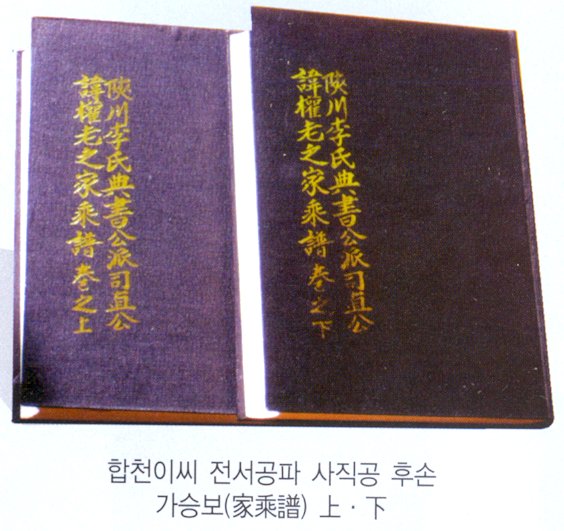 陜川李氏典書公派司直公
諱櫂老之家乘譜 卷之上
陜川李氏典書公派司直公
諱櫂老之家乘譜 卷之下
합천이씨 전서공파 사직공 후손
가승보(家乘譜) 上 · 下